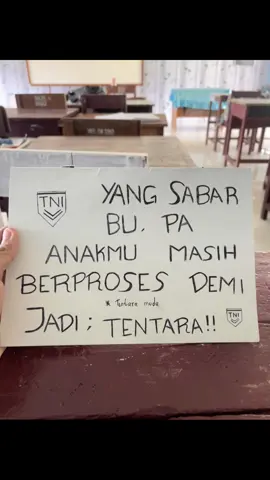 TNI
YANG SABAR
BU, PA
ANAKMU MASIH
BERPROSES DEMI
JADI ; TENTARA!!
TNI